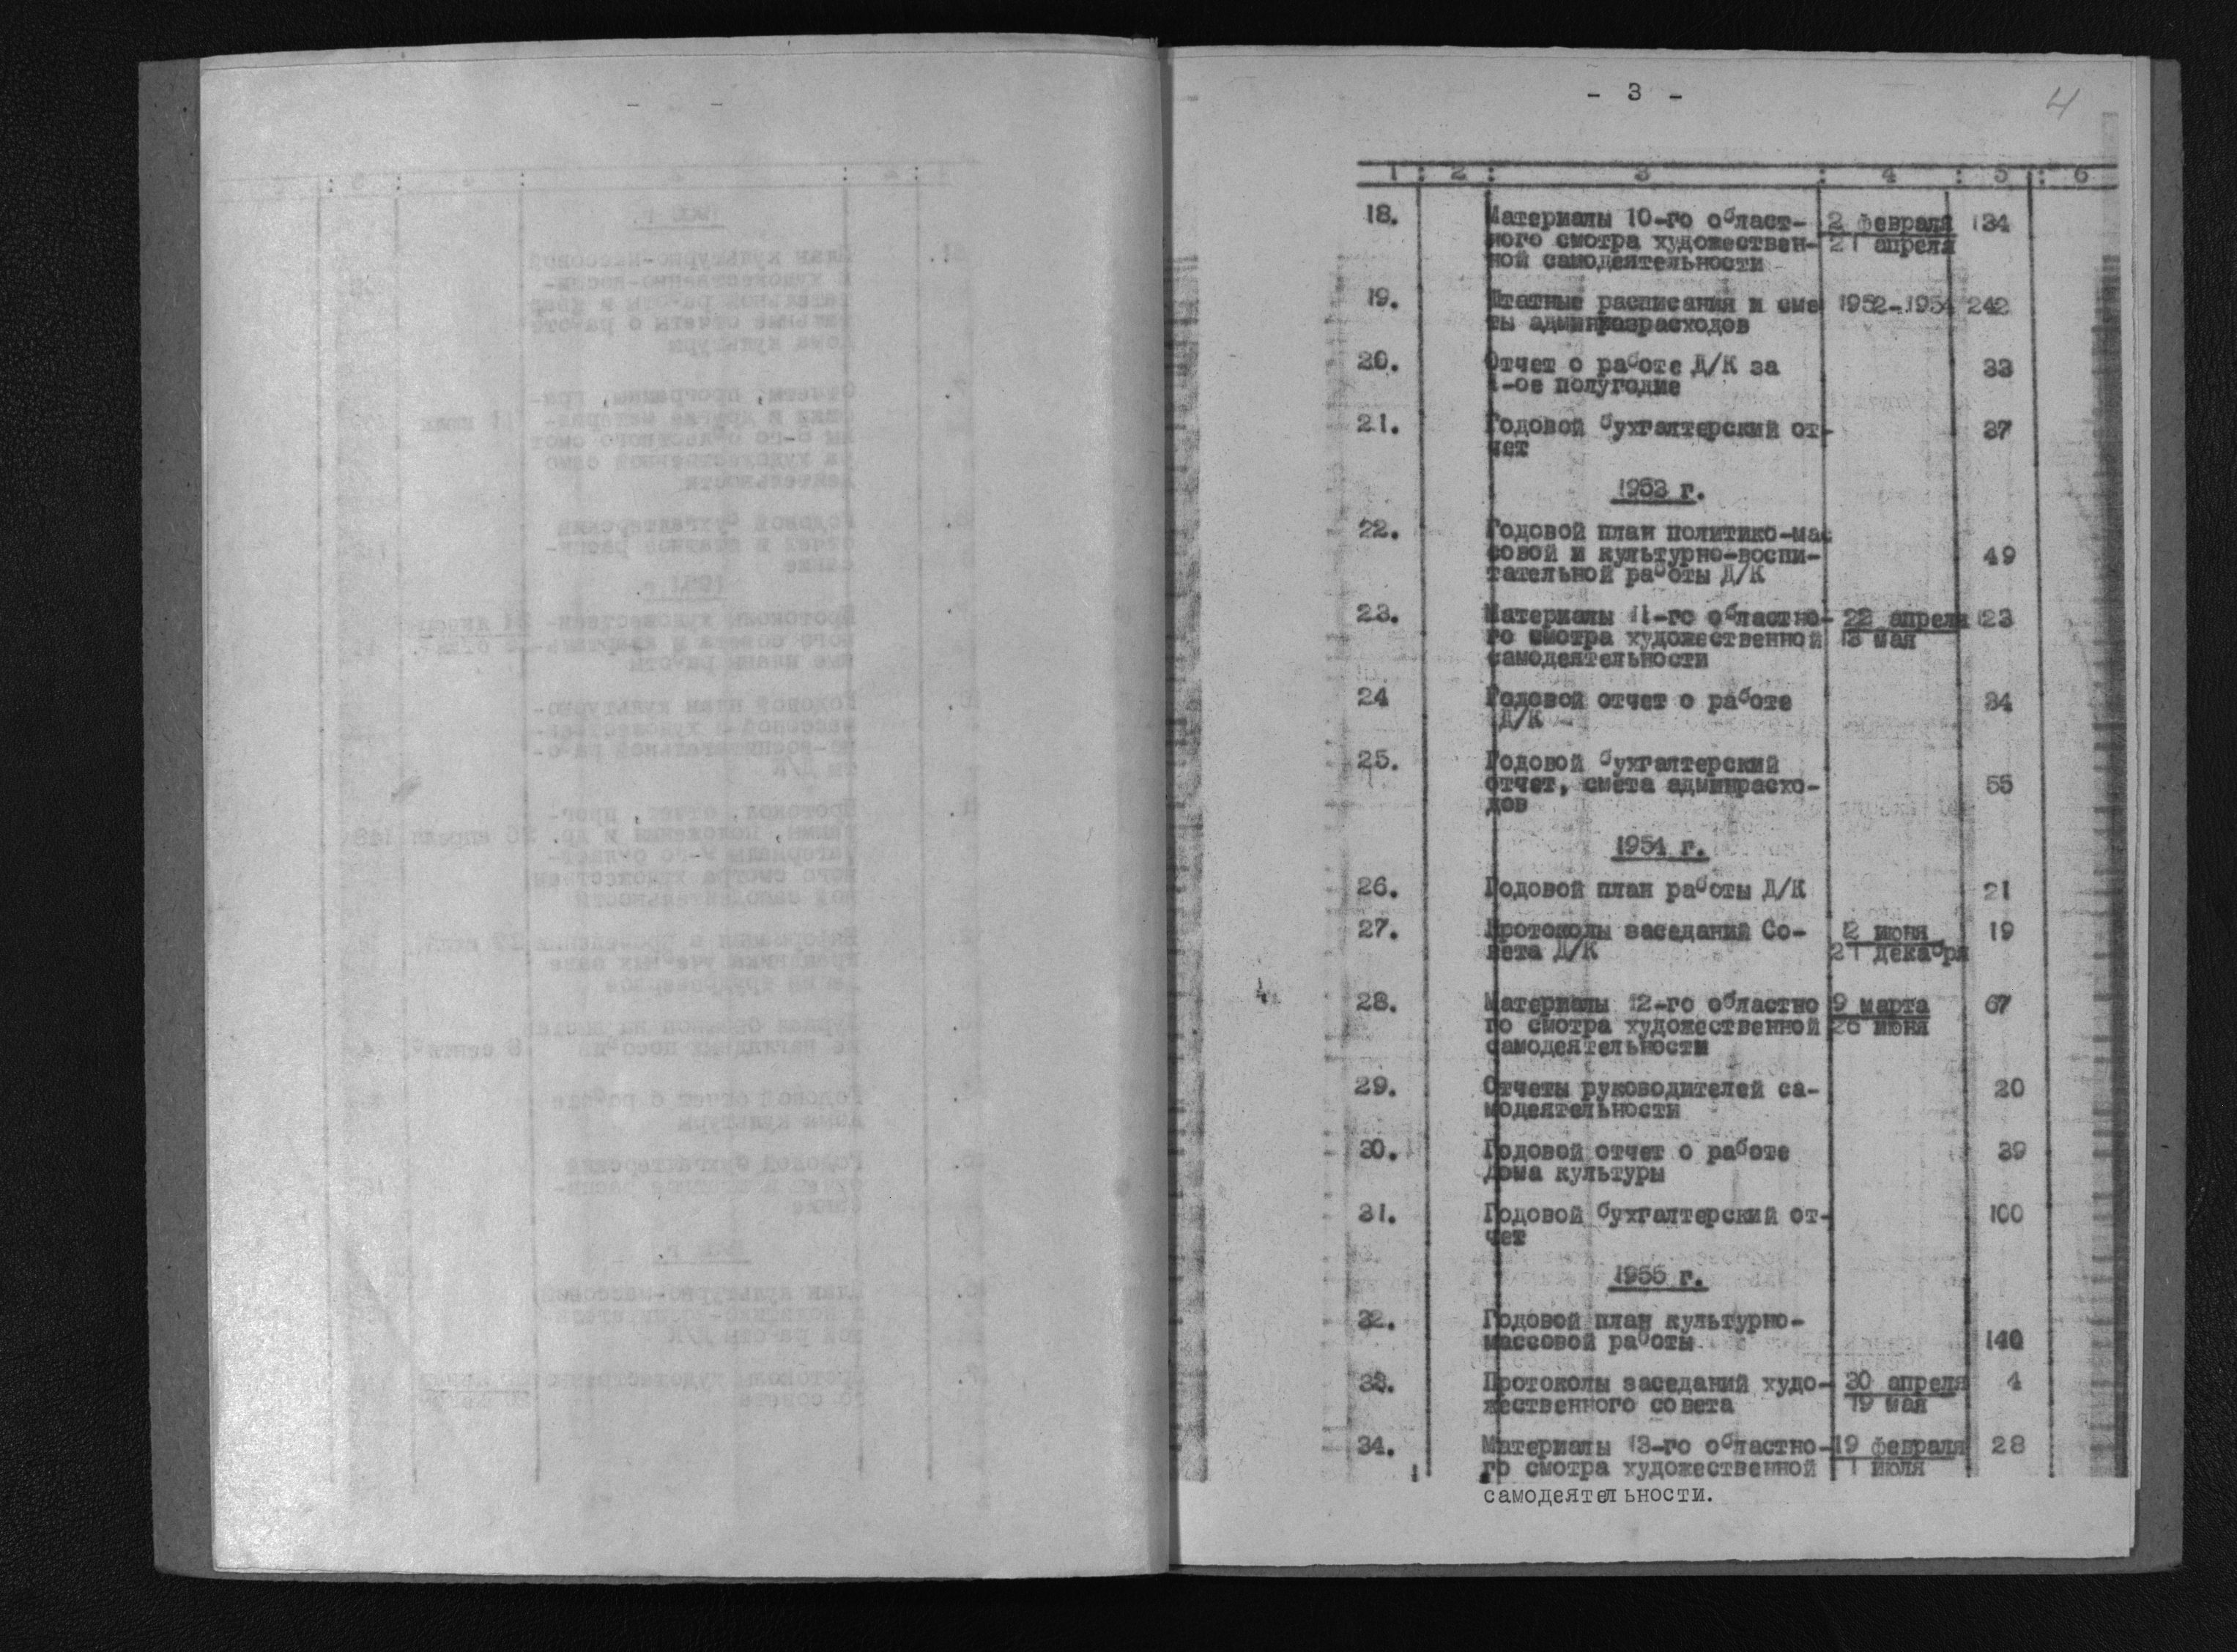 - 3 -
4
1 : 2 : 3 : 4 : 5 : 6
18. Материалы 10-го област- 2 февраля 134
ного смотра художествен- 21 апреля
ной самодеятельности
19. Штатные расписания и сме 1952-1954 242
ты
20. Отчет о работе Д/К за 33
1-ое полугодие
21. Годовой бухгалтерский от- 37
чет
1953 г.
22. Годовой план политико-мас
совой и культурно-воспи- 49
тательной работы Д/К
23. Материалы 11-го областно- 22 апреля 123
го смотра художественной 13 мая
самодеятельности
24 Годовой отчет о работе 34
Д/К
25. Годовой бухгалтерский
отчет, смета админрасхо- 55
дов
1954 г.
26. Годовой план работы Д/К 21
27. Протоколы заседаний Со- 12 июня 19
вета Д/К 21 декабря
28. Материалы 12-го областно 9 марта 67
го смотра художественной 26 июня
самодеятельности
29. Отчеты руководителей са- 20
модеятельности
30. Годовой отчет о работе 39
Дома культуры
31. Годовой бухгалтерский от- 100
чет
1955 г.
32. Годовой план культурно-
массовой работы 140
33. Протоколы заседаний худо- 30 апреля 4
жественного совета 19 мая
34. Материалы 13-го областно- 19 февраля 28
го смотра художественной 1 июля
самодеятельности.